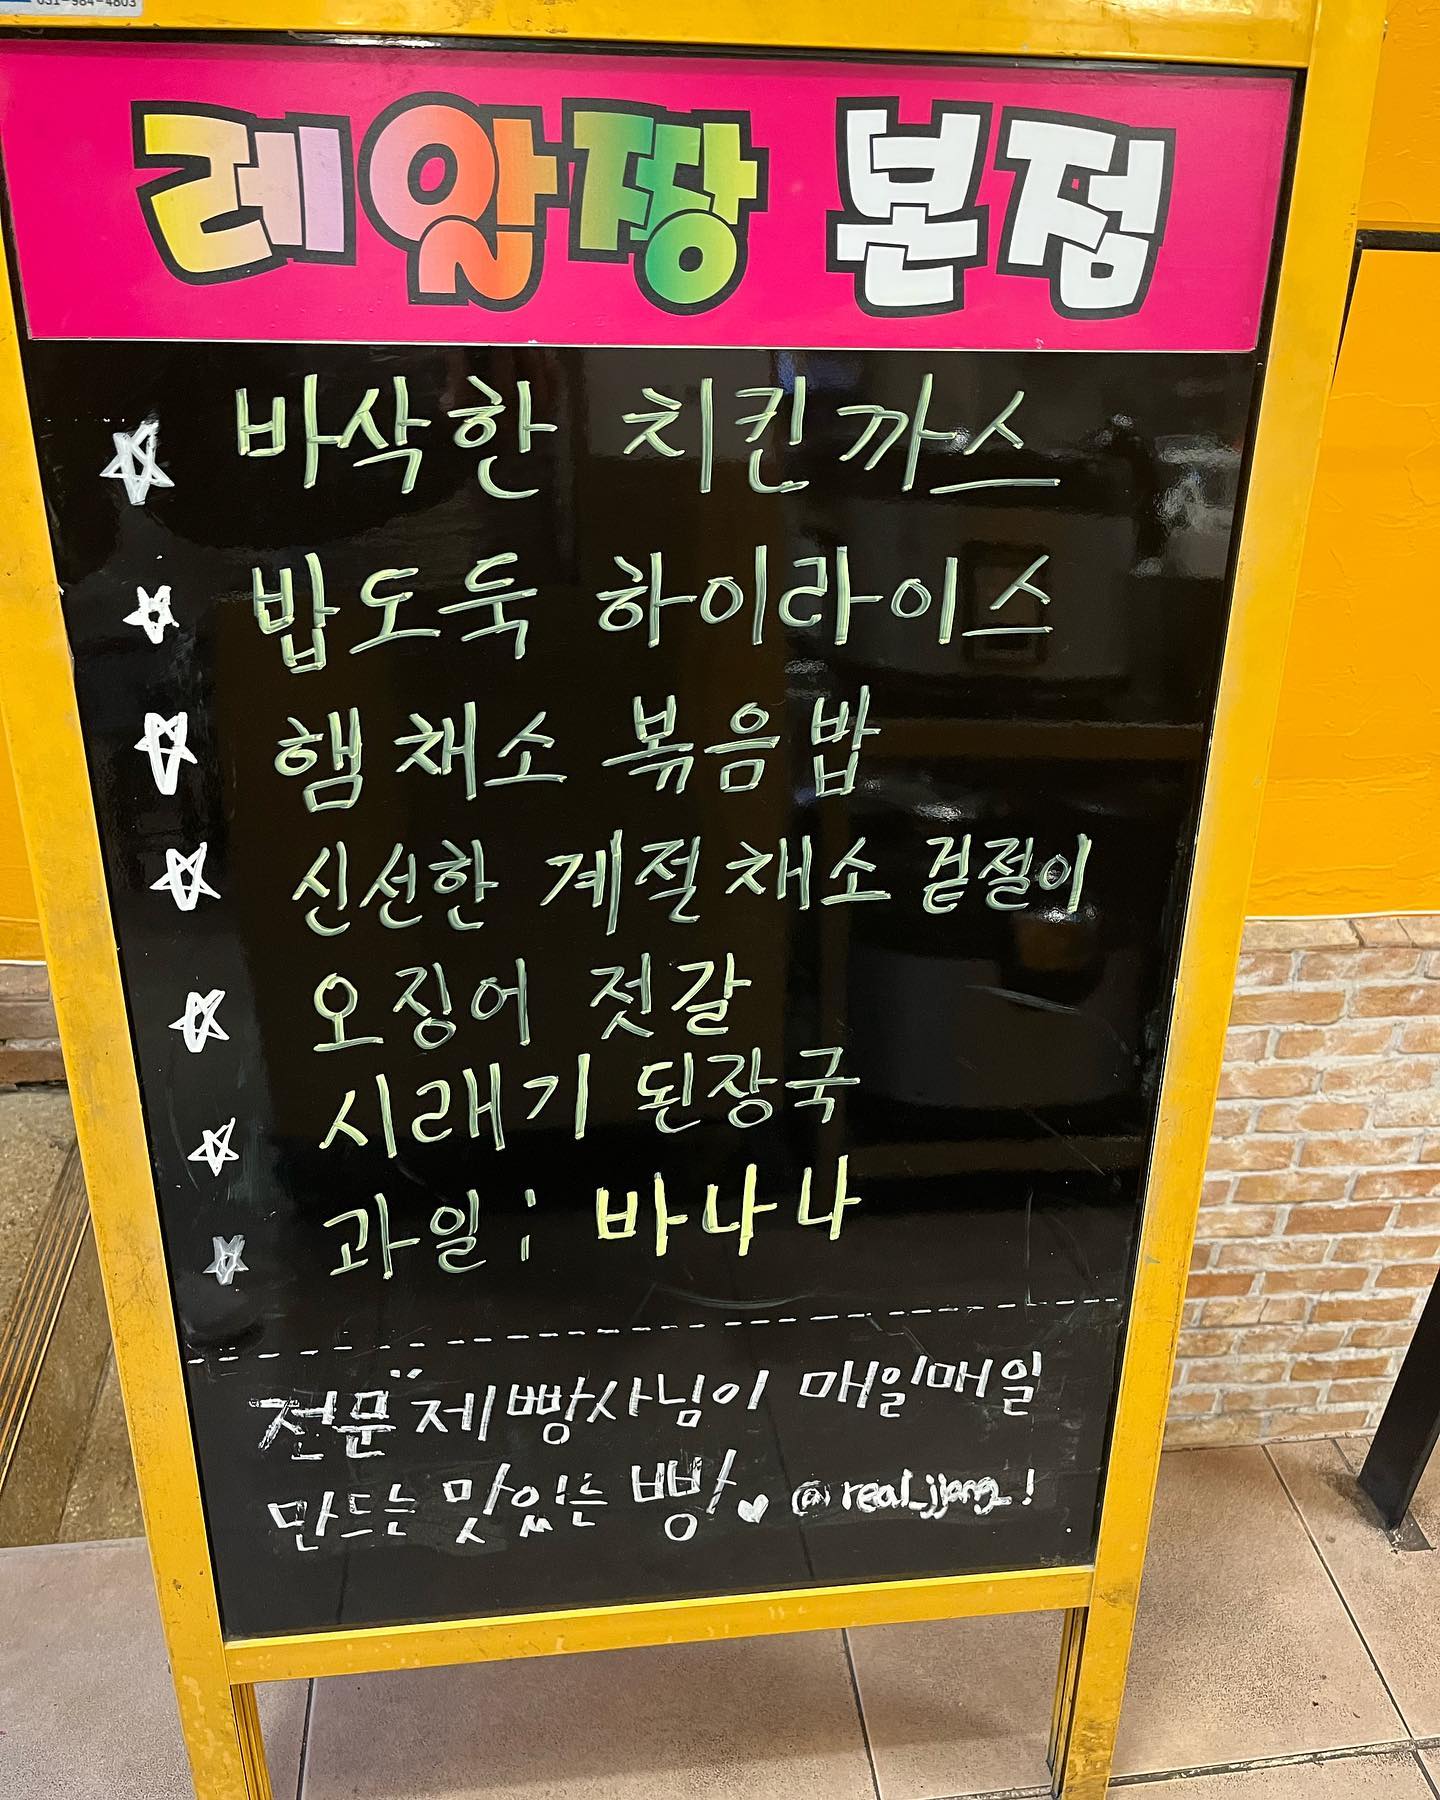 031-984-4803
레알짱 본점
바삭한 치킨까스
밥도둑 하이라이스
햄채소 볶음밥
신선한 계절채소 겉절이
오징어 젓갈
시래기 된장국
과일; 바나나
전문 제빵사님이 매일매일
만드는 맛있는 빵♥ @real_jjang_!